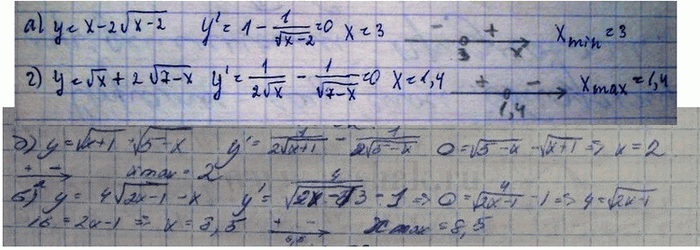 а) y = x - 2√(x-2) y' = 1 - 1/√(x-2) = 0 x = 3 - + 3 x x min = 3
г) y = √x + 2√(7-x) y' = 1/(2√x) - 1/√(7-x) = 0 x = 1,4 + - 1,4 x max = 1,4
y = √(x+1) √(5-x) y' = 1/(2√(x+1)) - 1/(2√(5-x)) 0 = √(5-x) - √(x+1) => x = 2
+ - 2 x max = 2
б) y = 4√(2x-1) - x y' = 4/√ - 1 => 0 = 4/√(2x-1) - 1 => 4 = √(2x-1)
16 = 2x-1 => x = 8,5 + - 8,5 x max = 8,5